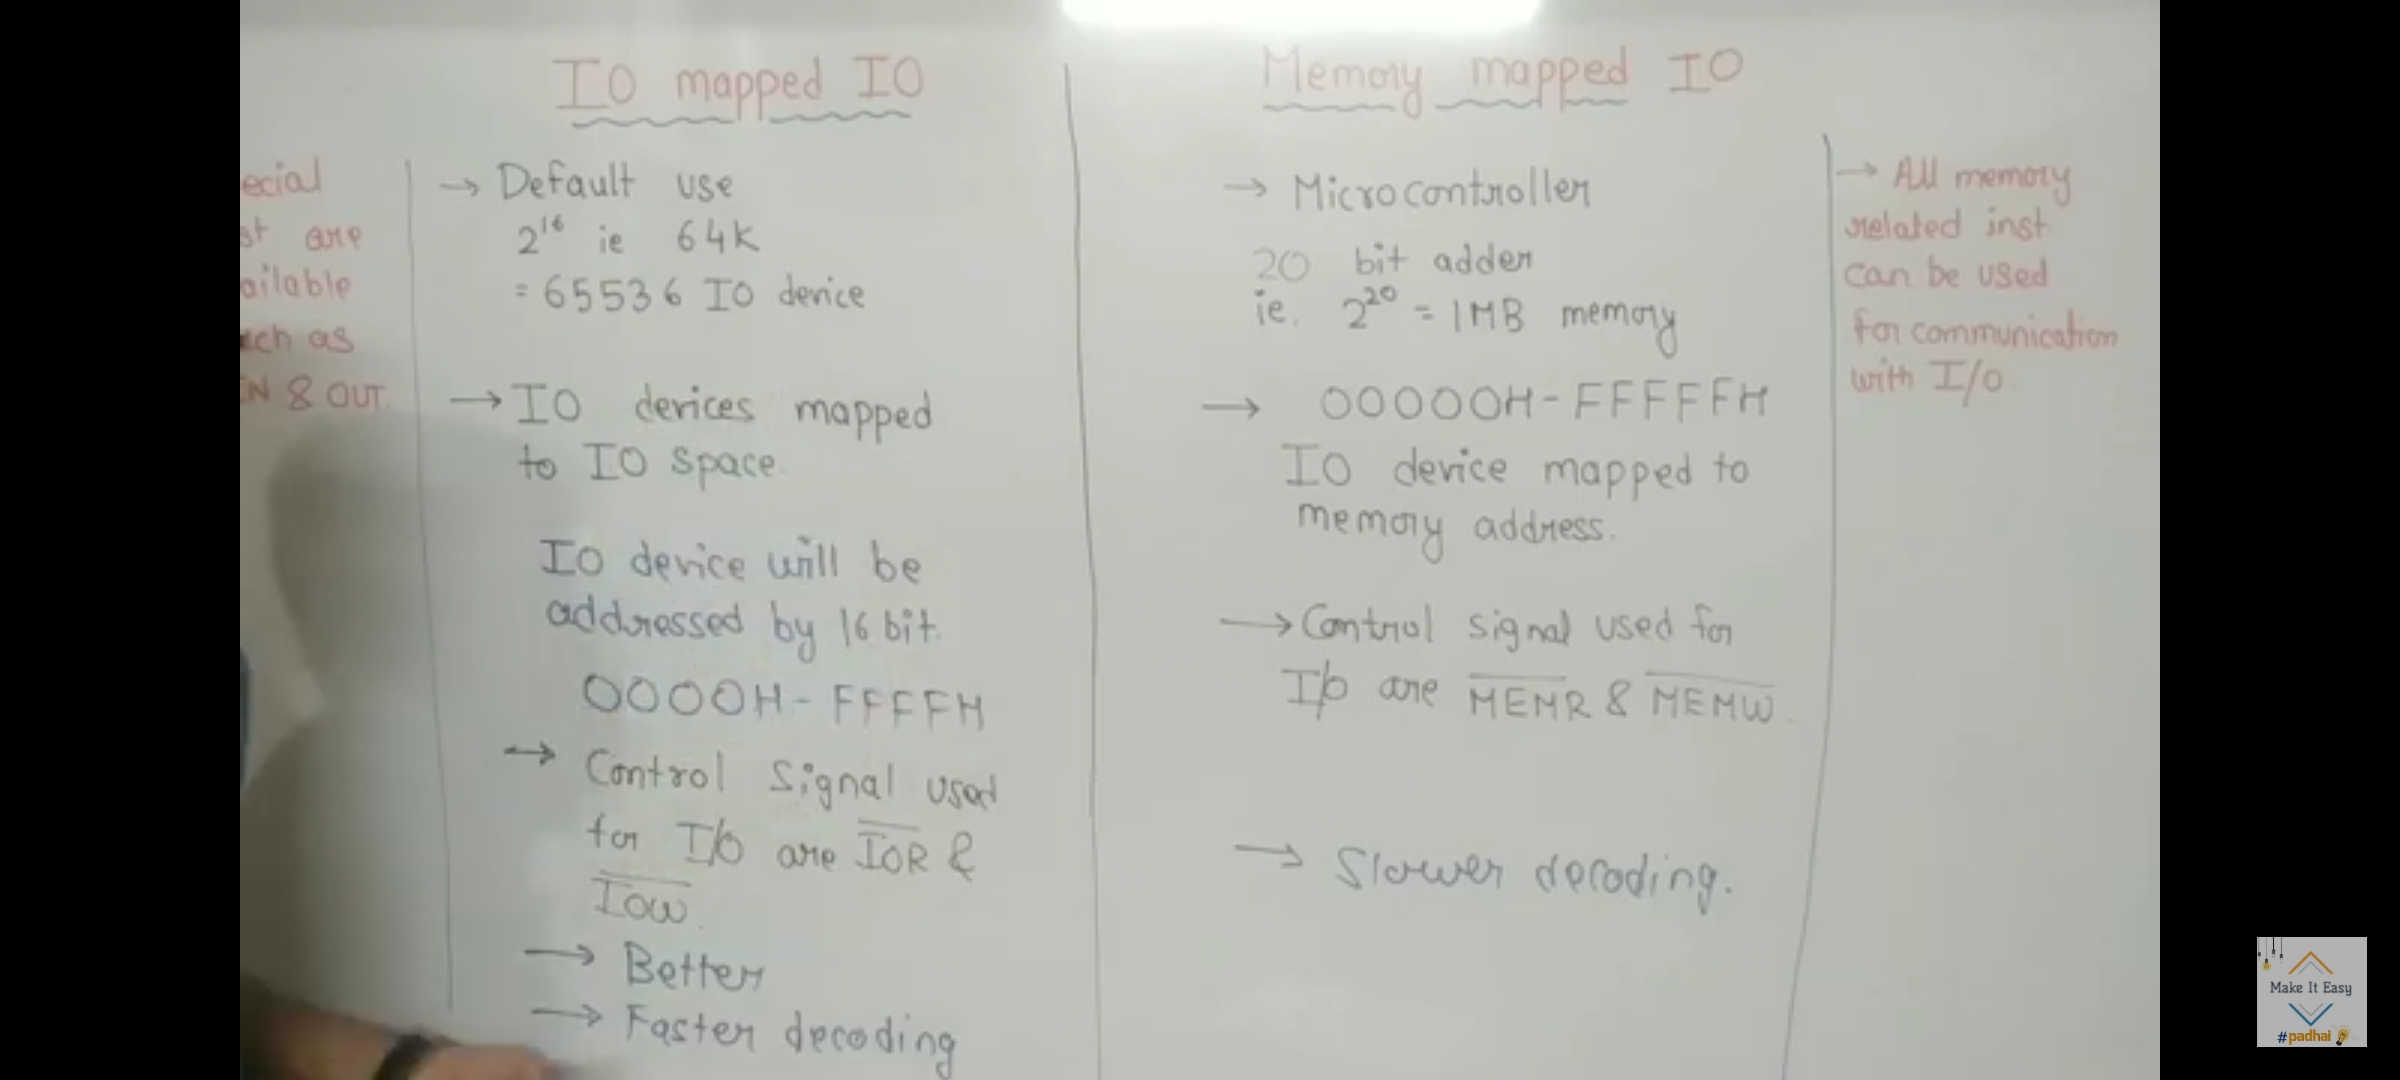 IO mapped IO
Memory mapped IO
ecial
st are
ailable
ch as
IN & OUT.
→ Default use
2¹⁶ ie 64K
= 65536 IO device
→ IO devices mapped
to IO space.
IO device will be
addressed by 16 bit.
0000H - FFFFH
→ Control Signal used
for I/O are I̅O̅R̅ &
I̅O̅W̅.
→ Better
→ Faster decoding
→ Microcontroller
20 bit adder
ie. 2²⁰ = 1MB memory
→ 00000H - FFFFFH
IO device mapped to
memory address.
→ Control signal used for
I/O are M̅E̅M̅R̅ & M̅E̅M̅W̅.
→ Slower decoding.
→ All memory
related inst
can be used
for communication
with I/O
Make It Easy
#padhai